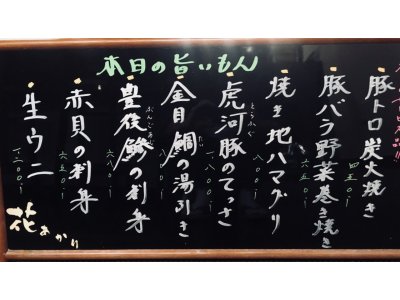 本日の旨いもん
豚トロ炭火焼き
四五〇
豚バラ野菜巻き焼き
焼き地ハマグリ
八〇〇
虎河豚のてっさ
とらふぐ
一八〇〇
金目鯛の湯引き
豊後鯵の刺身
赤貝の刺身
六五〇
生ウニ
一二〇〇
花あかり